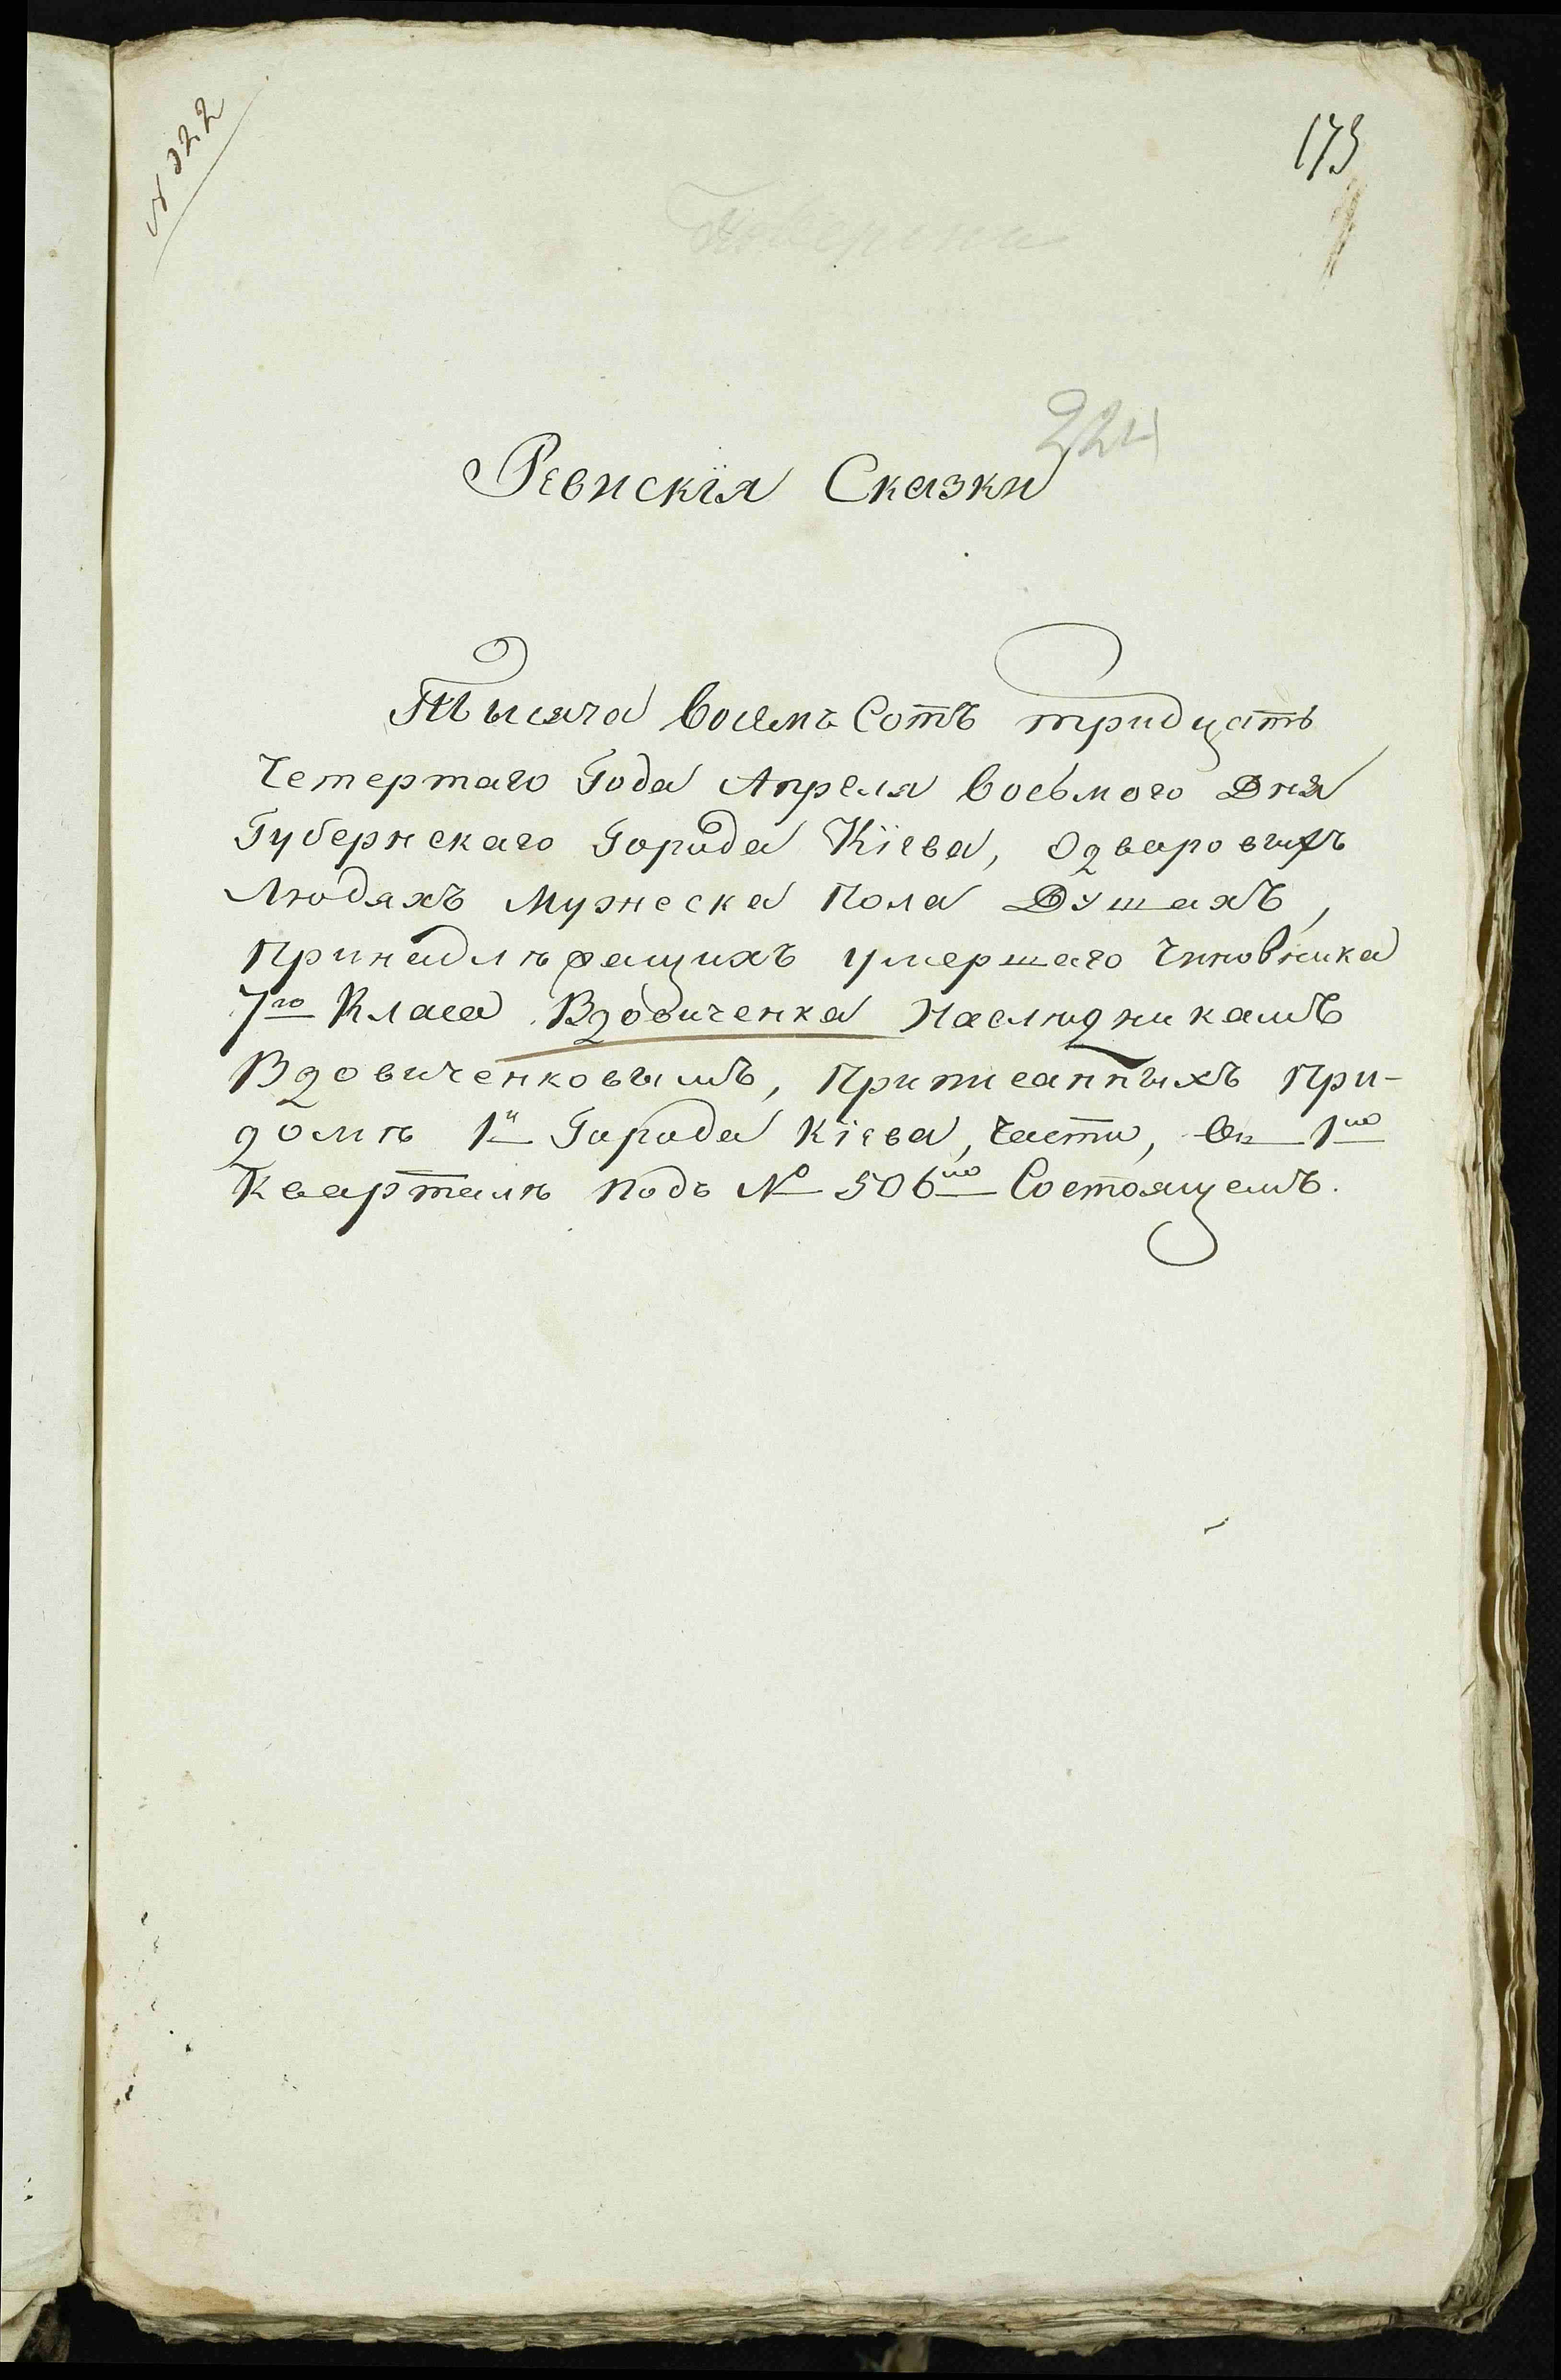 № 322
173
224
Ревискія Сказки
Тысяча восемъ Сотъ тридцать
Четертаго Года Апреля восьмого Дня
Губернскаго Города Кіева, Одваровыхъ
Людяхъ Мужеска Пола Душахъ,
Принадлѣжащихъ умершаго Чиновника
7го Класа Вдовиченка Наслюдникамъ
Вдовиченковымъ, Приписанныхъ При-
домѣ 1й Города Кіева, Части, въ 1мъ
Кварталѣ подъ № 506мъ Состоящемъ.